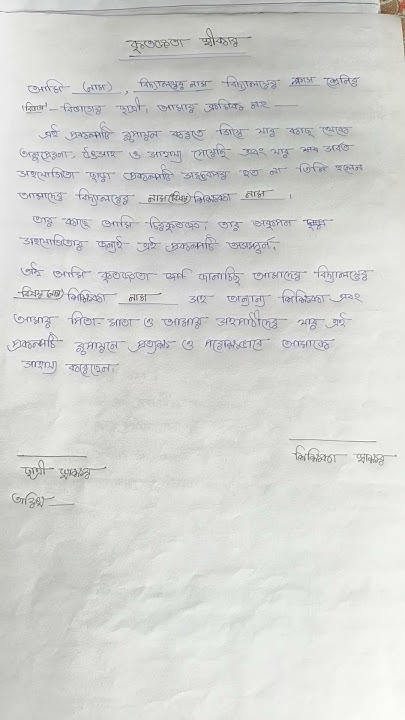 কৃতজ্ঞতা স্বীকার
আমি (নাম), বিদ্যালয়ের নাম বিদ্যালয়ের ক্লাস শ্রেনির
'বিভাগ' - বিভাগের ছাত্রী, আমার ক্রমিক নং —
এই প্রকল্পটি রূপায়ন করতে গিয়ে যার কাছ থেকে
অনুপ্রেরনা, উৎসাহ ও সাহায্য পেয়েছি এবং যার
সহযোগিতা ছাড়া প্রকল্পটি হত না তিনি হলেন
আমাদের বিদ্যালয়ের নাম (বিষয়) শিক্ষিকা নাম ।
তার কাছে আমি চিরকৃতজ্ঞ, তার
সহযোগিতার জন্যই এই প্রকল্পটি
তাই আমি কৃতজ্ঞতা জানাচ্ছি আমাদের বিদ্যালয়ের
বিষয় শিক্ষিকা নাম সহ অন্যান্য শিক্ষিকা এবং
আমার পিতা-মাতা ও আমার সহপাঠীদের যারা এই
প্রকল্পটি রূপায়নে প্রত্যক্ষ ও পরোক্ষভাবে আমাকে
সাহায্য করেছেন।
ছাত্রী স্বাক্ষর
শিক্ষিকা স্বাক্ষর
তারিখ